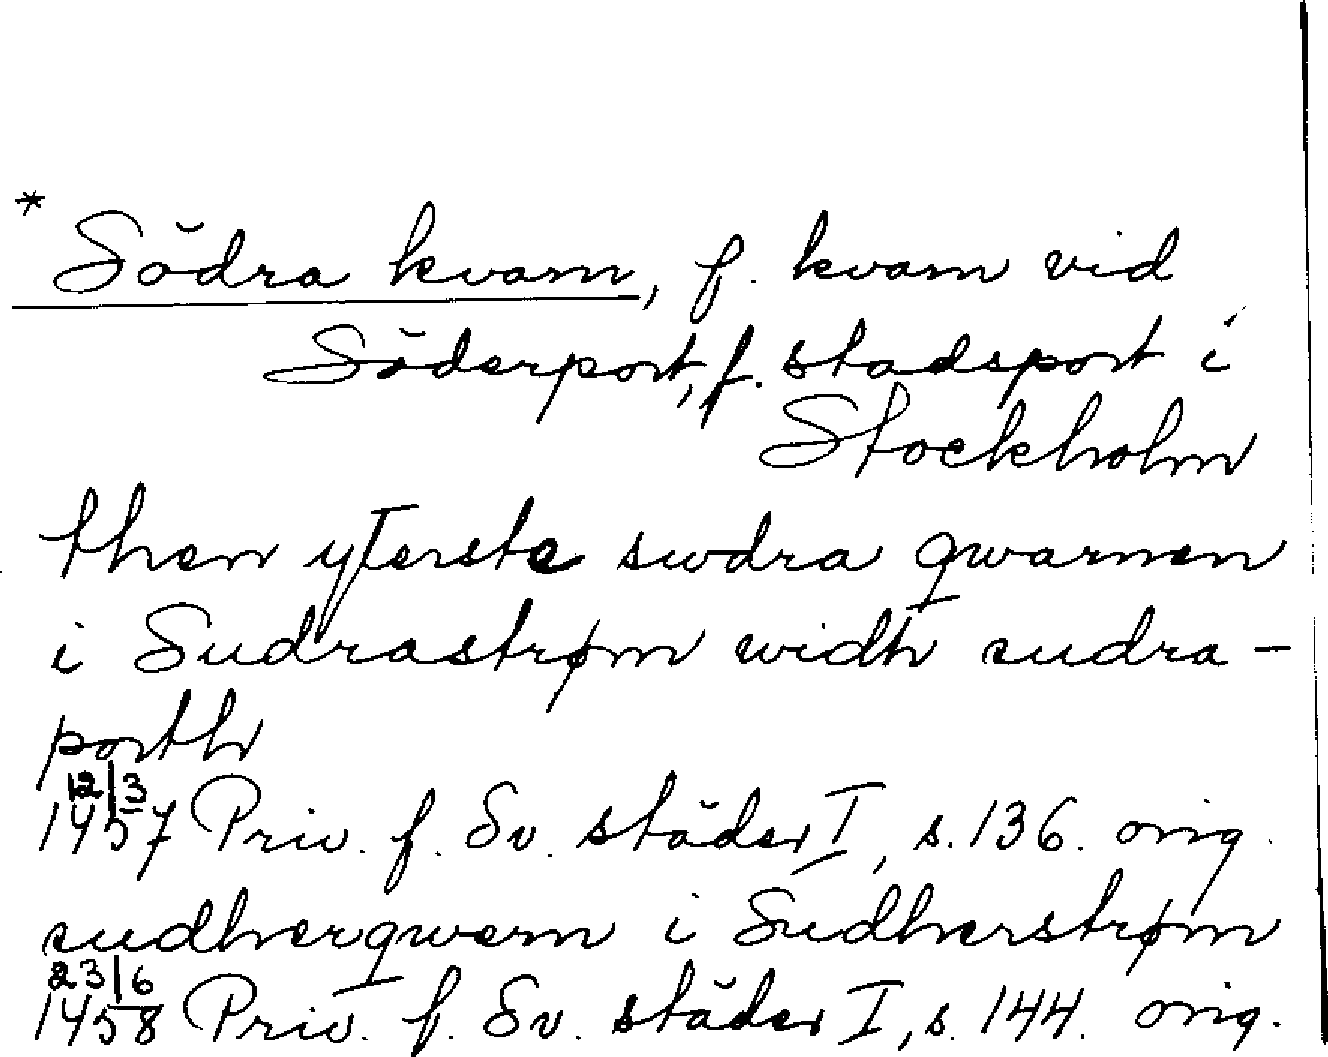 * Södra kvarn, f. kvarn vid
Söderport, f. stadsport i
Stockholm
then yterste swdra qwarnen
i Sudrastrøm widh sudra-
porth
12/3
1457 Priv. f. Sv. städer I, s. 136. orig.
sudherqwern i Sudherstrøm
23/6
1458 Priv. f. Sv. städer I, s. 144. orig.